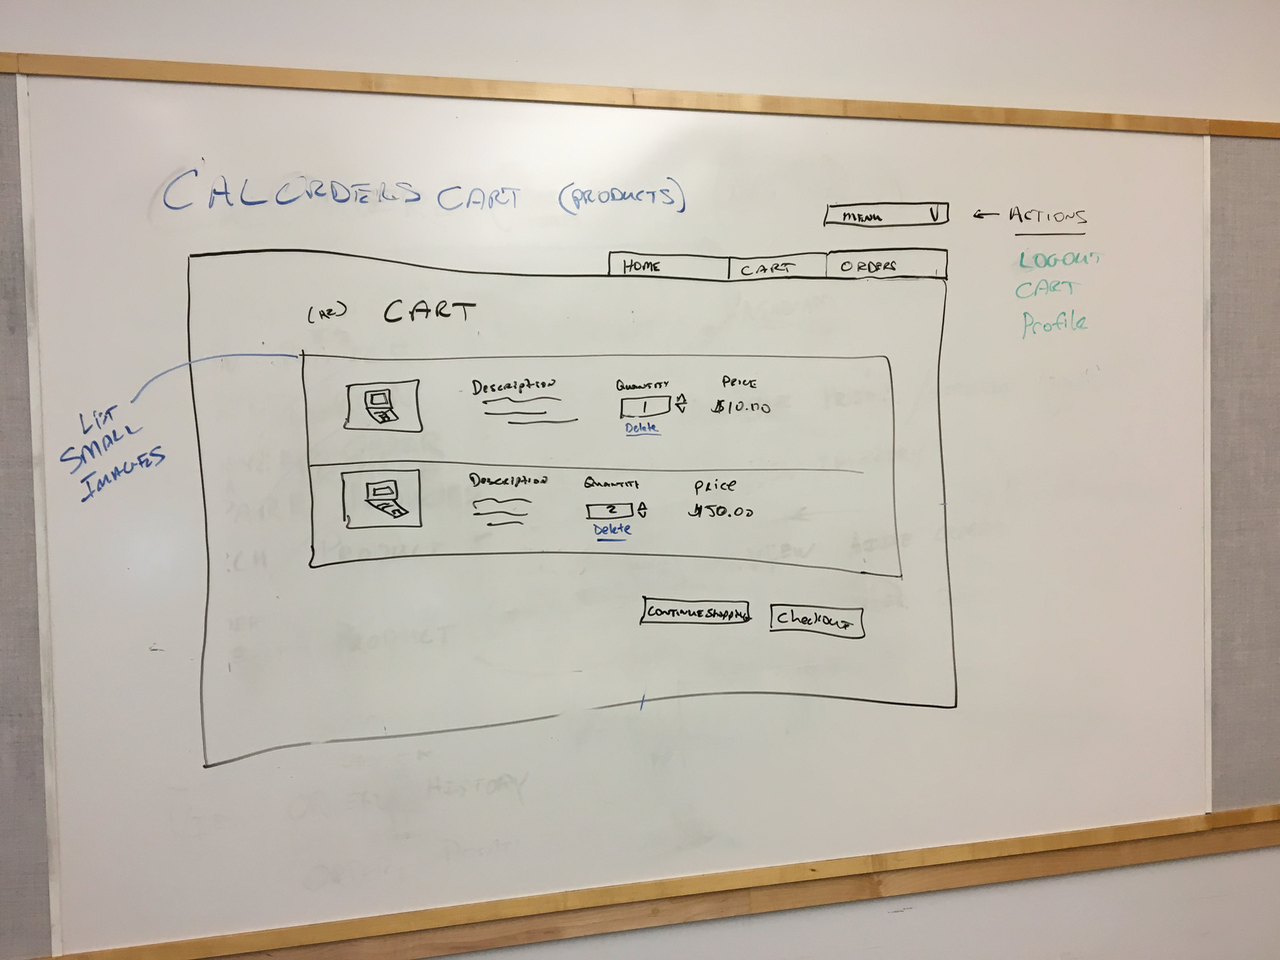 CALORDERS CART (PRODUCTS)
MENU V ← ACTIONS
LOGOUT
CART
Profile
HOME CART ORDERS
CART
LIST
SMALL
IMAGES
Description Quantity Price
1 $10.00
Delete
Description Quantity Price
2 $50.00
Delete
CONTINUE SHOPPING Checkout